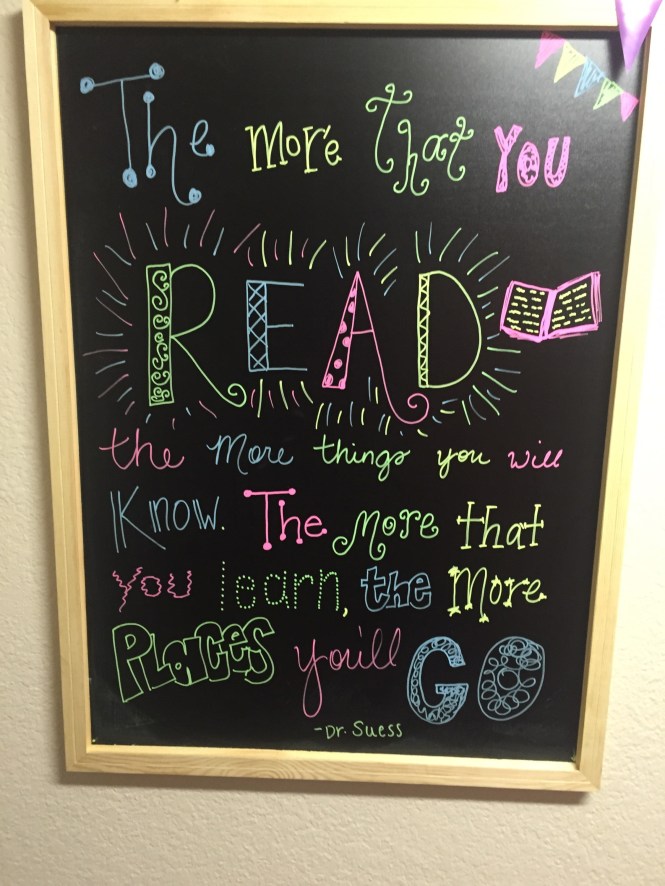 The more that you
READ
the more things you will
Know. The more that
you learn, the More
PLaces you'll GO
-Dr. Suess